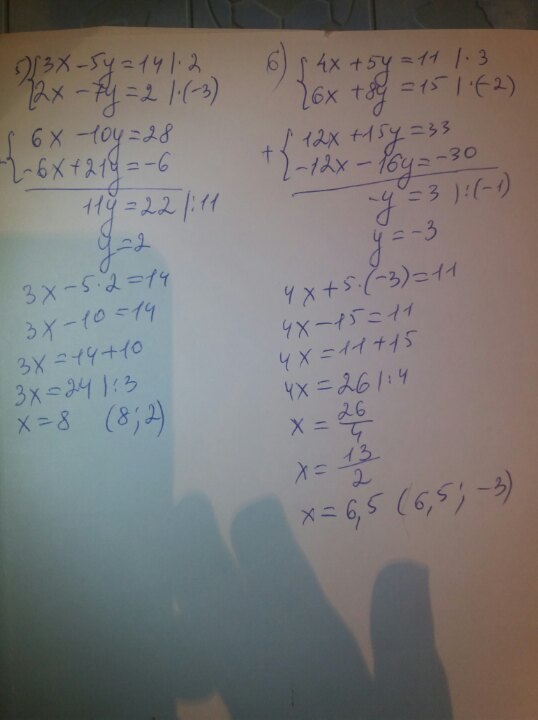 5) 3x - 5y = 14 | · 2
2x - 7y = 2 | · (-3)
6x - 10y = 28
-6x + 21y = -6
11y = 22 | : 11
y = 2
3x - 5 · 2 = 14
3x - 10 = 14
3x = 14 + 10
3x = 24 | : 3
x = 8 (8; 2)
6) 4x + 5y = 11 | · 3
6x + 8y = 15 | · (-2)
+ 12x + 15y = 33
-12x - 16y = -30
-y = 3 | : (-1)
y = -3
4x + 5 · (-3) = 11
4x - 15 = 11
4x = 11 + 15
4x = 26 | : 4
x = 26/4
x = 13/2
x = 6,5 (6,5; -3)